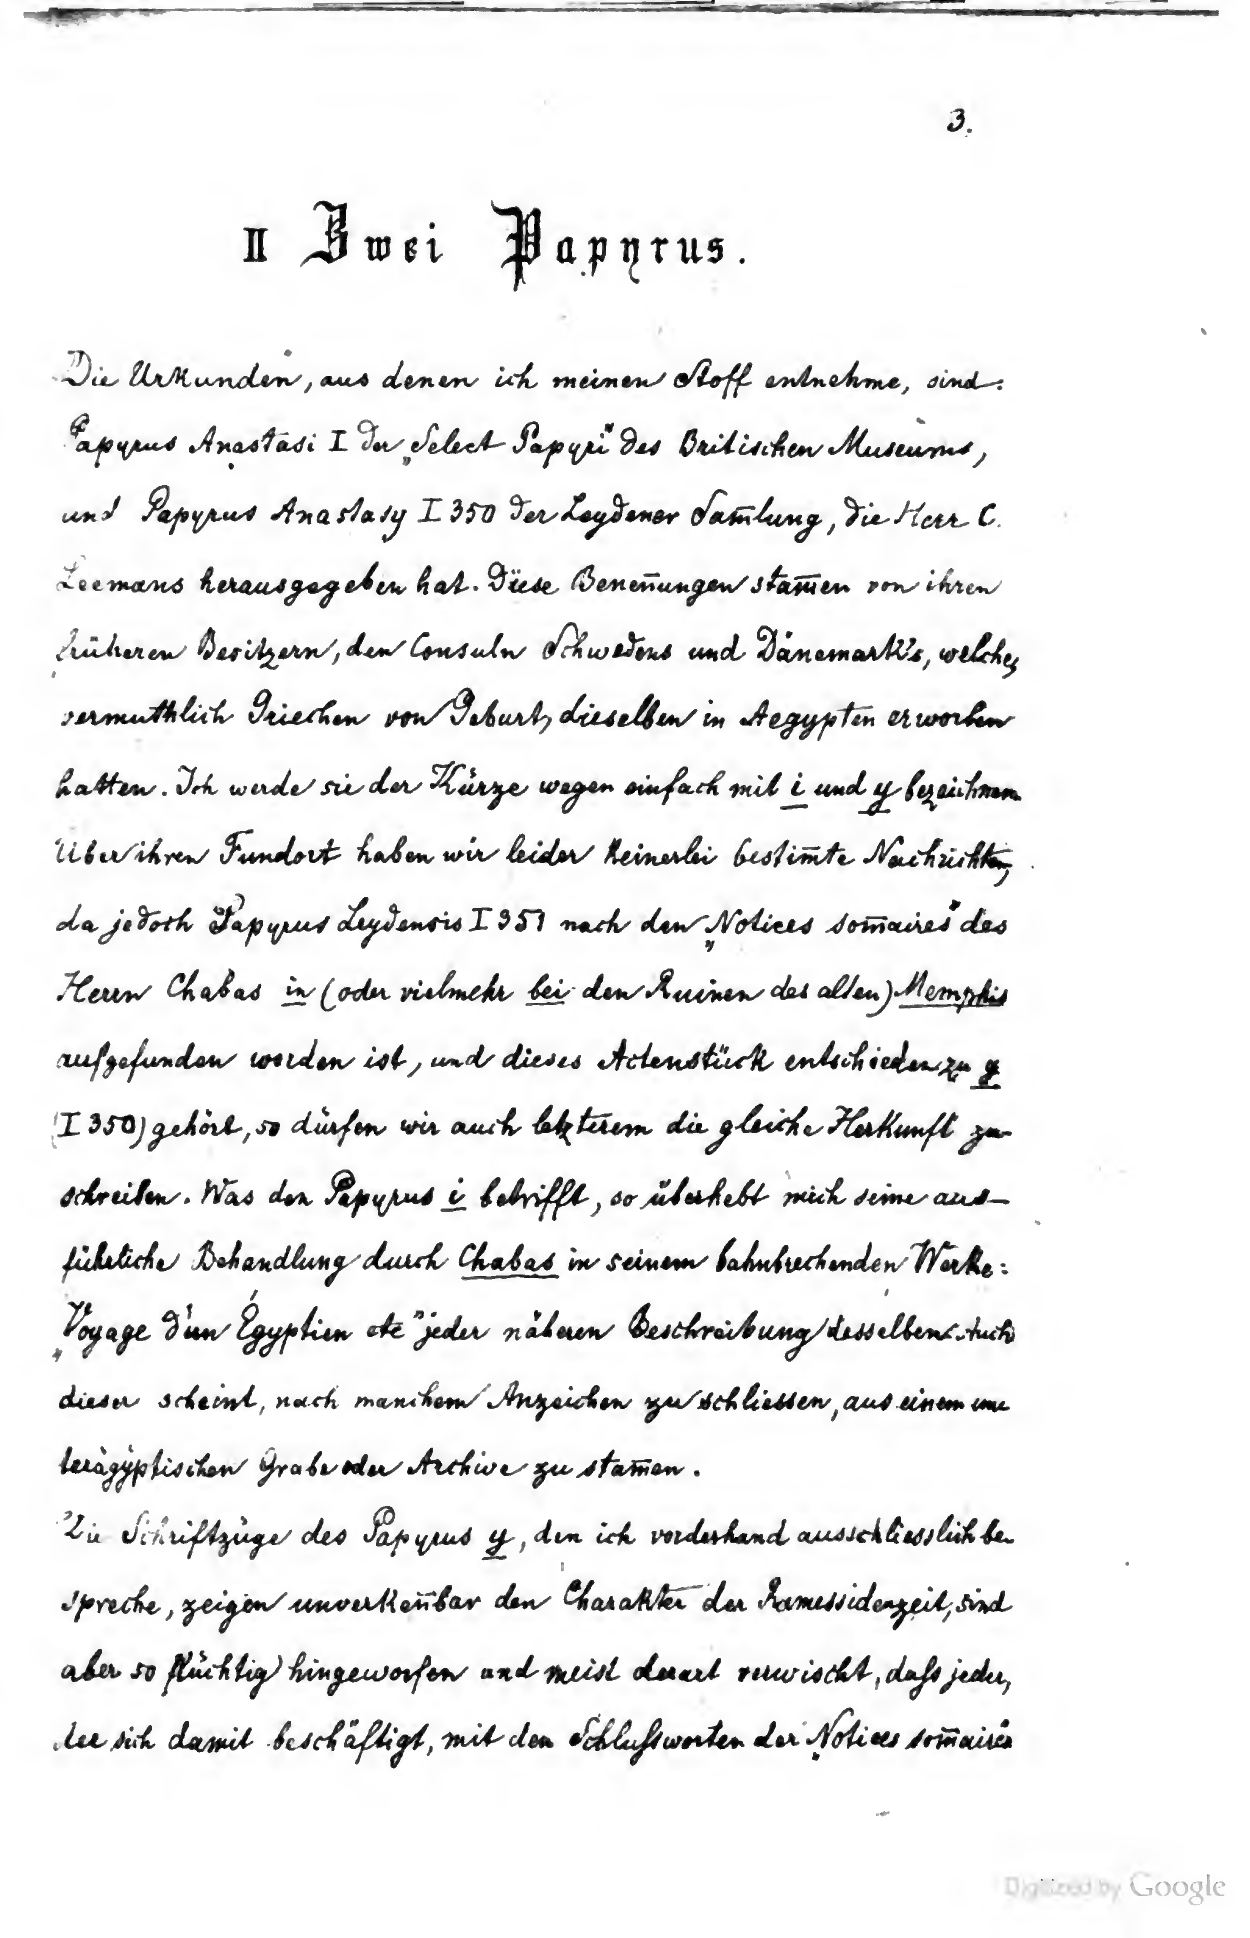 3.
II Zwei Papyrus.
Die Urkunden, aus denen ich meinen Stoff entnehme, sind:
Papyrus Anastasi I der „Select Papyri" des Britischen Museums,
und Papyrus Anastasy I 350 der Leydener Sam̄lung, die Herr C.
Leemans herausgegeben hat. Diese Benen̄ungen stam̄en von ihren
früheren Besitzern, den Consuln Schwedens und Dänemark's, welche,
vermuthlich Griechen von Geburt, dieselben in Aegypten erworben
hatten. Ich werde sie der Kürze wegen einfach mit i und y bezeichnen.
Über ihren Fundort haben wir leider keinerlei bestim̄te Nachrichten,
da jedoch Papyrus Leydensis I 351 nach den „Notices som̄aires" des
Herrn Chabas in (oder vielmehr bei den Ruinen des alten) Memphis
aufgefunden worden ist, und dieses Actenstück entschieden zu y
(I 350) gehört, so dürfen wir auch letzterem die gleiche Herkunft zu-
schreiben. Was den Papyrus i betrifft, so überhebt mich seine aus-
führliche Behandlung durch Chabas in seinem bahnbrechenden Werke:
„Voyage d'un Égyptien etc" jeder näheren Beschreibung desselben. Auch
dieser scheint, nach manchem Anzeichen zu schliessen, aus einem un-
terägyptischen Grabe oder Archive zu stam̄en.
Die Schriftzüge des Papyrus y, den ich vorderhand ausschliesslich be-
spreche, zeigen unverken̄bar den Charakter der Ramessidenzeit, sind
aber so flüchtig hingeworfen und meist derart verwischt, daſs jeder,
der sich damit beschäftigt, mit den Schluſsworten der „Notices som̄aires"
Digitized by Google